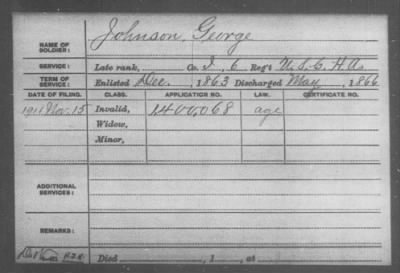 Johnson, George
NAME OF SOLDIER:
SERVICE: Late rank, Co. I, 6 Reg't U.S.C.H.A.
TERM OF SERVICE: Enlisted Dec., 1863 Discharged May, 1866
DATE OF FILING. CLASS. APPLICATION NO. LAW. CERTIFICATE NO.
1911 Nov. 15 Invalid, 1400,068 age
Widow,
Minor,
ADDITIONAL SERVICES:
REMARKS:
Died , 1 , at